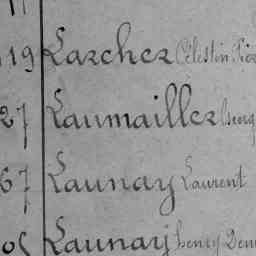 19 Larcher Célestin
27 Laumailler
67 Launay Laurent
05 Launay henry